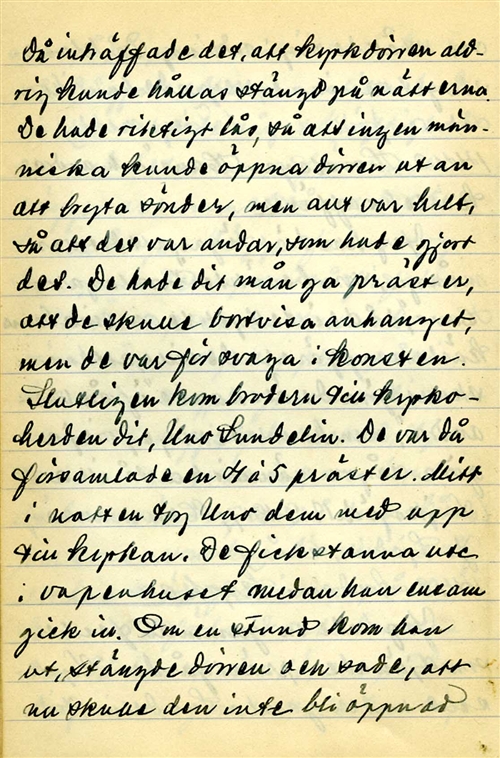 Då inträffade det, att kyrkdörren ald-
rig kunde hållas stängd på nätterna.
De hade riktigt lås, så att ingen män-
niska kunde öppna dörren utan
att bryta sönder, men allt var helt,
så att det var andar, som hade gjort
det. De hade dit många präster,
att de skulle bortvisa anhanget,
men de var för svaga i konsten.
Slutligen kom brodern till kyrko-
herden dit, Uno Sundelin. De var då
församlade en 4 à 5 präster. Mitt
i natten tog Uno dem med upp
till kyrkan. De fick stanna ute
i vapenhuset medan han ensam
gick in. Om en stund kom han
ut, stängde dörren och sade, att
nu skulle den inte bli öppnad